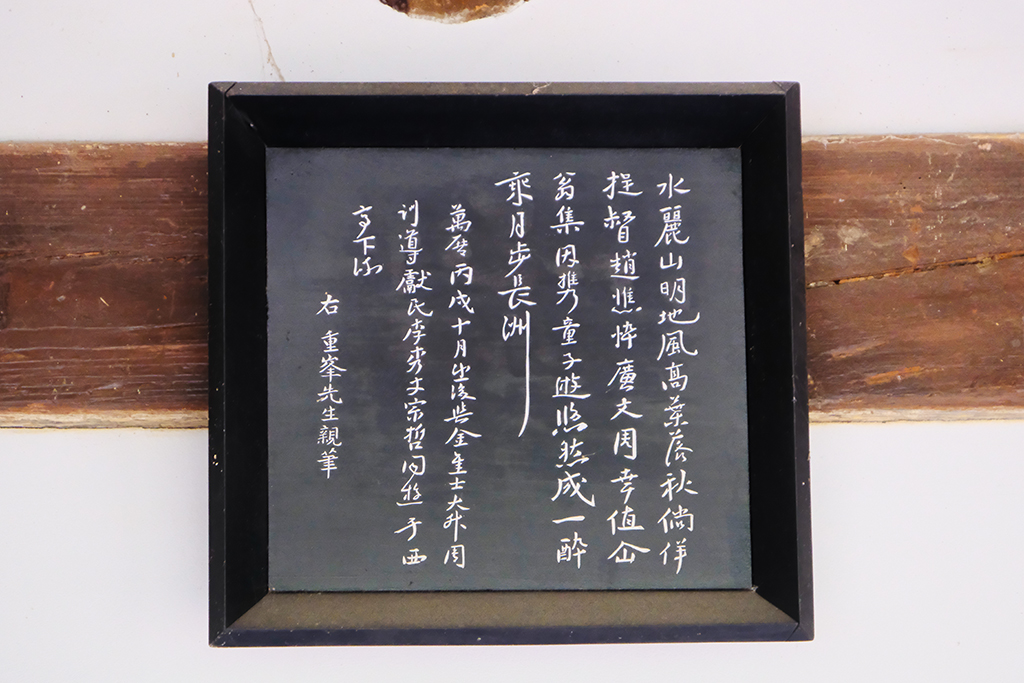 水麗山明地風高葉落秋倘佯
提督趙憔悴廣文周幸值仚
翁集因携童子遊悠然成一酔
乘月步長洲
萬厯丙戌十月後金士大升周
訓導獻民李秀才宗哲同遊于西
亭下
右 重峯先生親筆